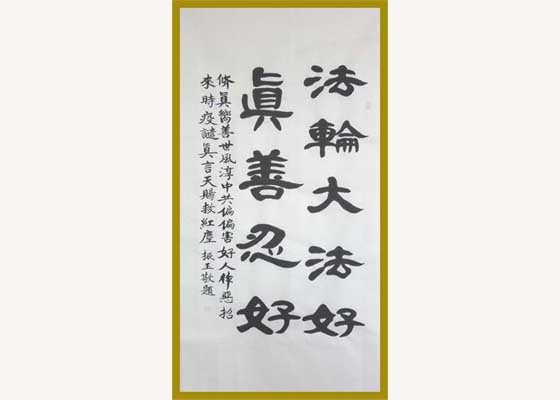 法輪大法好
眞善忍好
修眞嚮善世風淳中共偏偏害好人作惡招
來時疫譴眞言天賜救紅塵 振王敬題